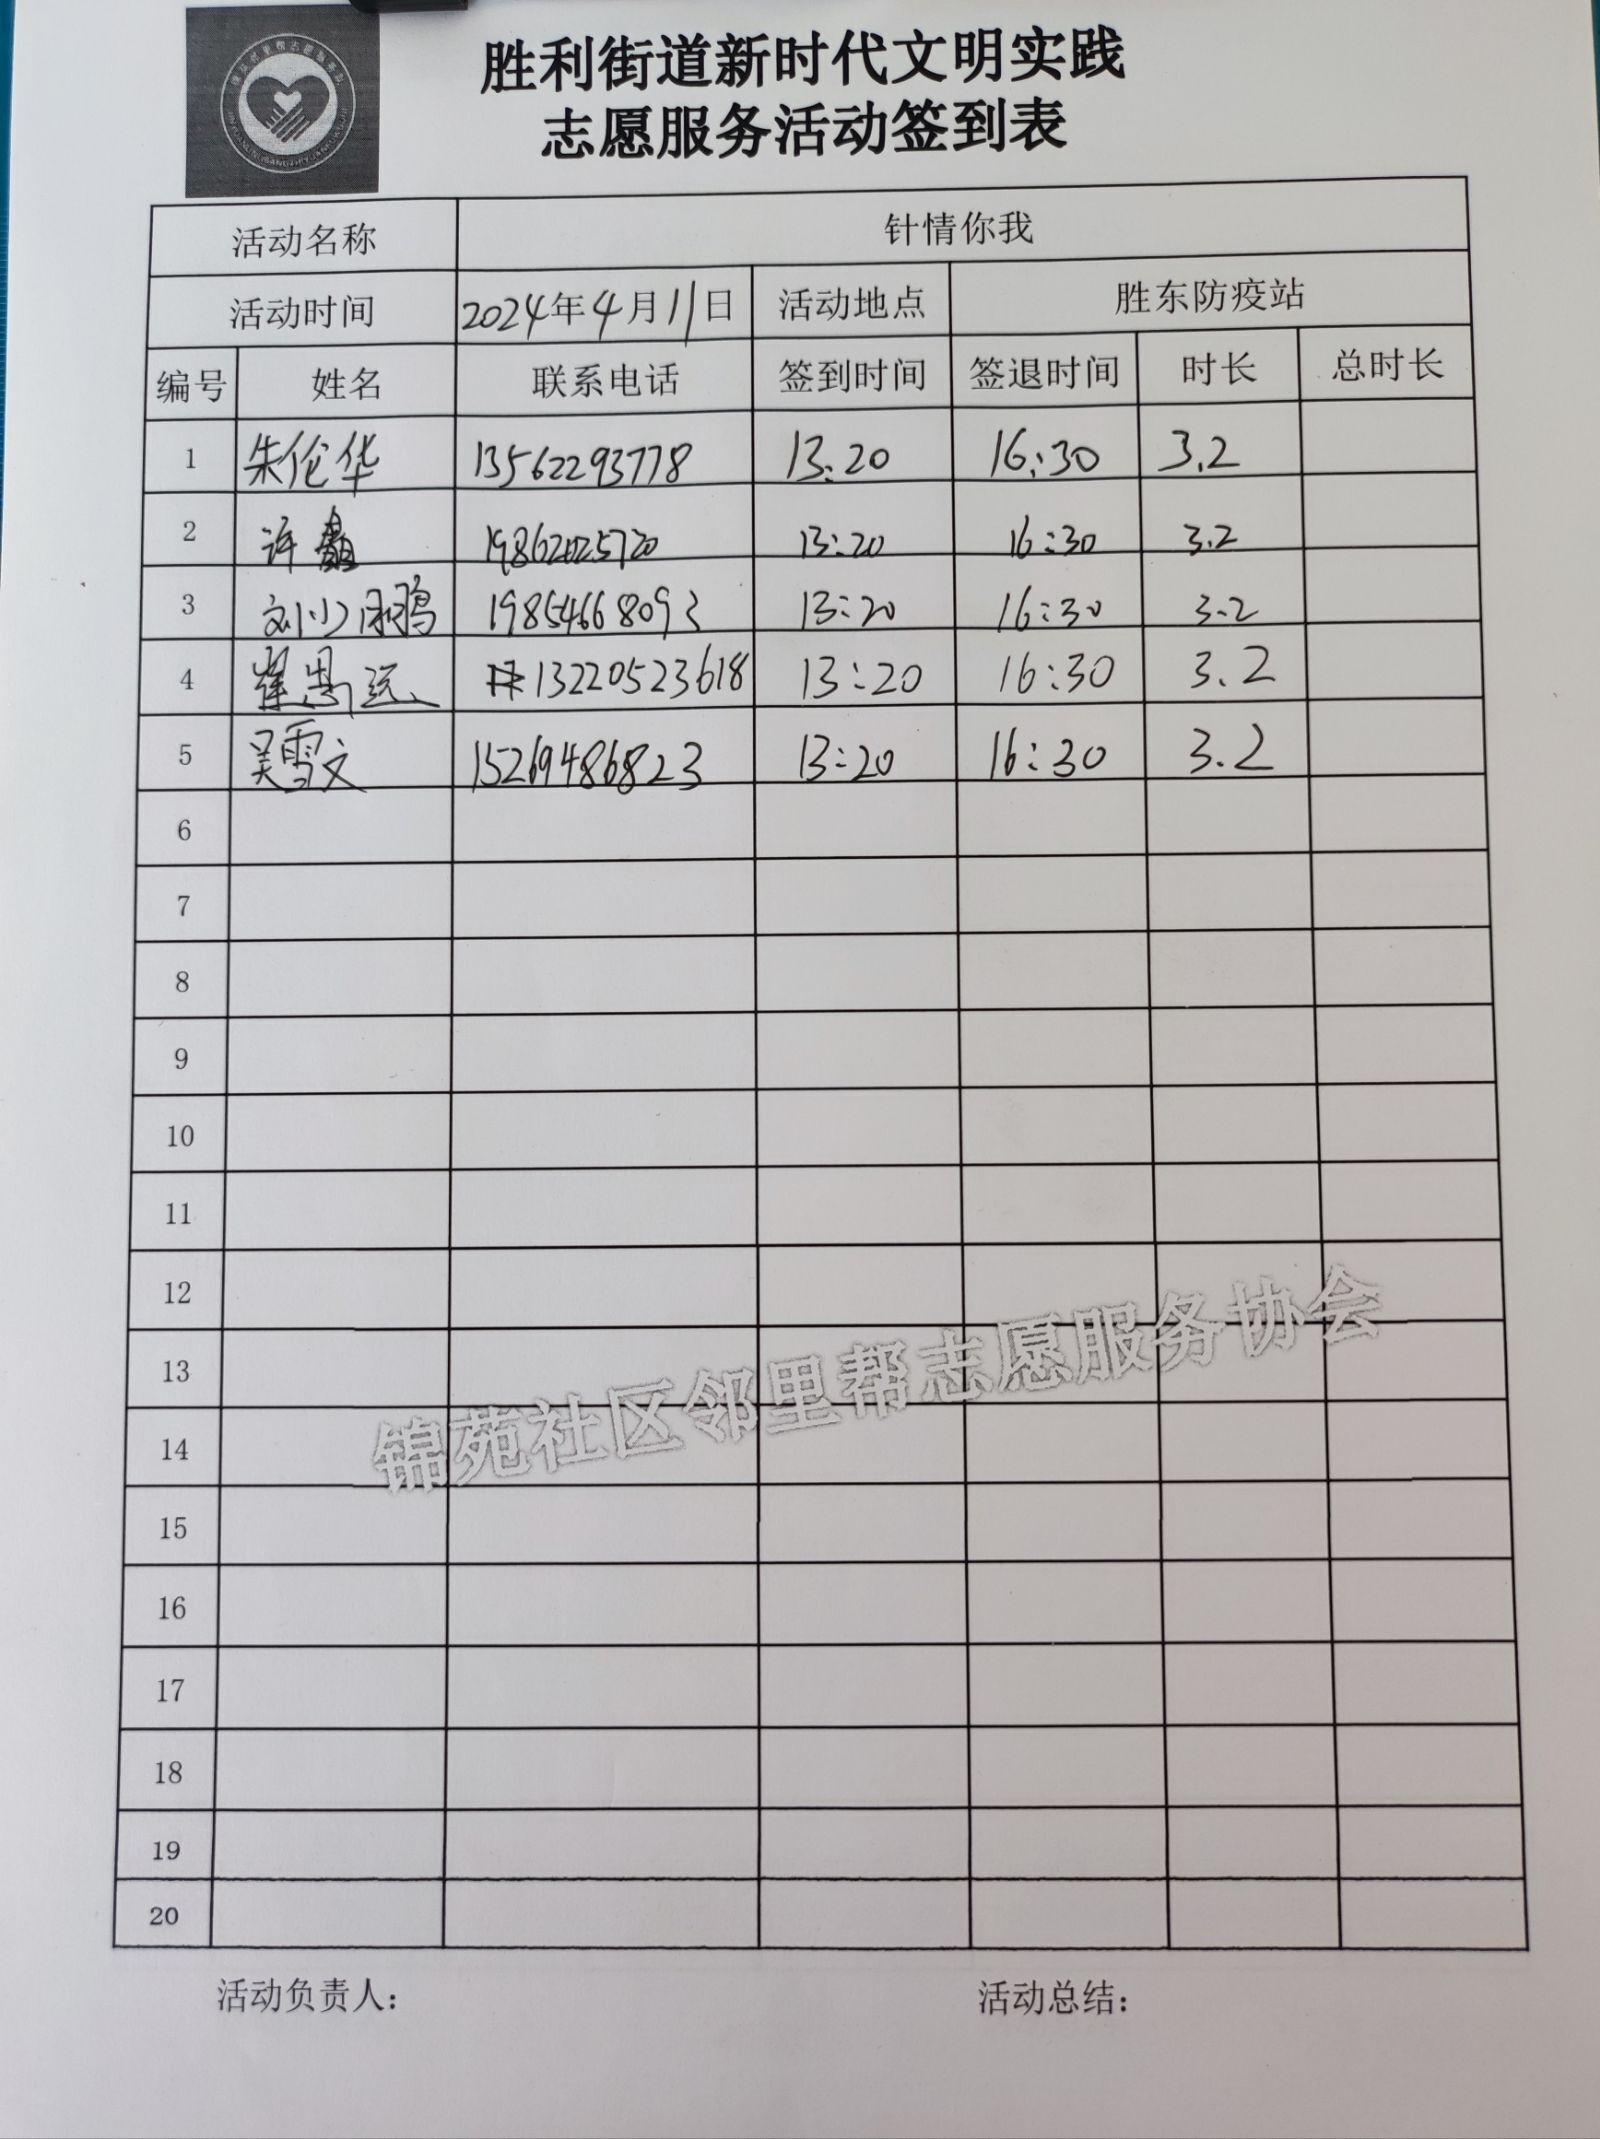 胜利街道新时代文明实践
志愿服务活动签到表
活动名称 针情你我
活动时间 2024年4月11日 活动地点 胜东防疫站
编号 姓名 联系电话 签到时间 签退时间 时长 总时长
1 朱伦华 13562293778 13:20 16:30 3.2
2 许 19862025720 13:20 16:30 3.2
3 刘小雨鹏 19854668093 13:20 16:30 3.2
4 崔思远 13220523618 13:20 16:30 3.2
5 吴雪文 15269486823 13:20 16:30 3.2
6
7
8
9
10
11
12
13
锦苑社区邻里帮志愿服务协会
14
15
16
17
18
19
20
活动负责人: 活动总结: